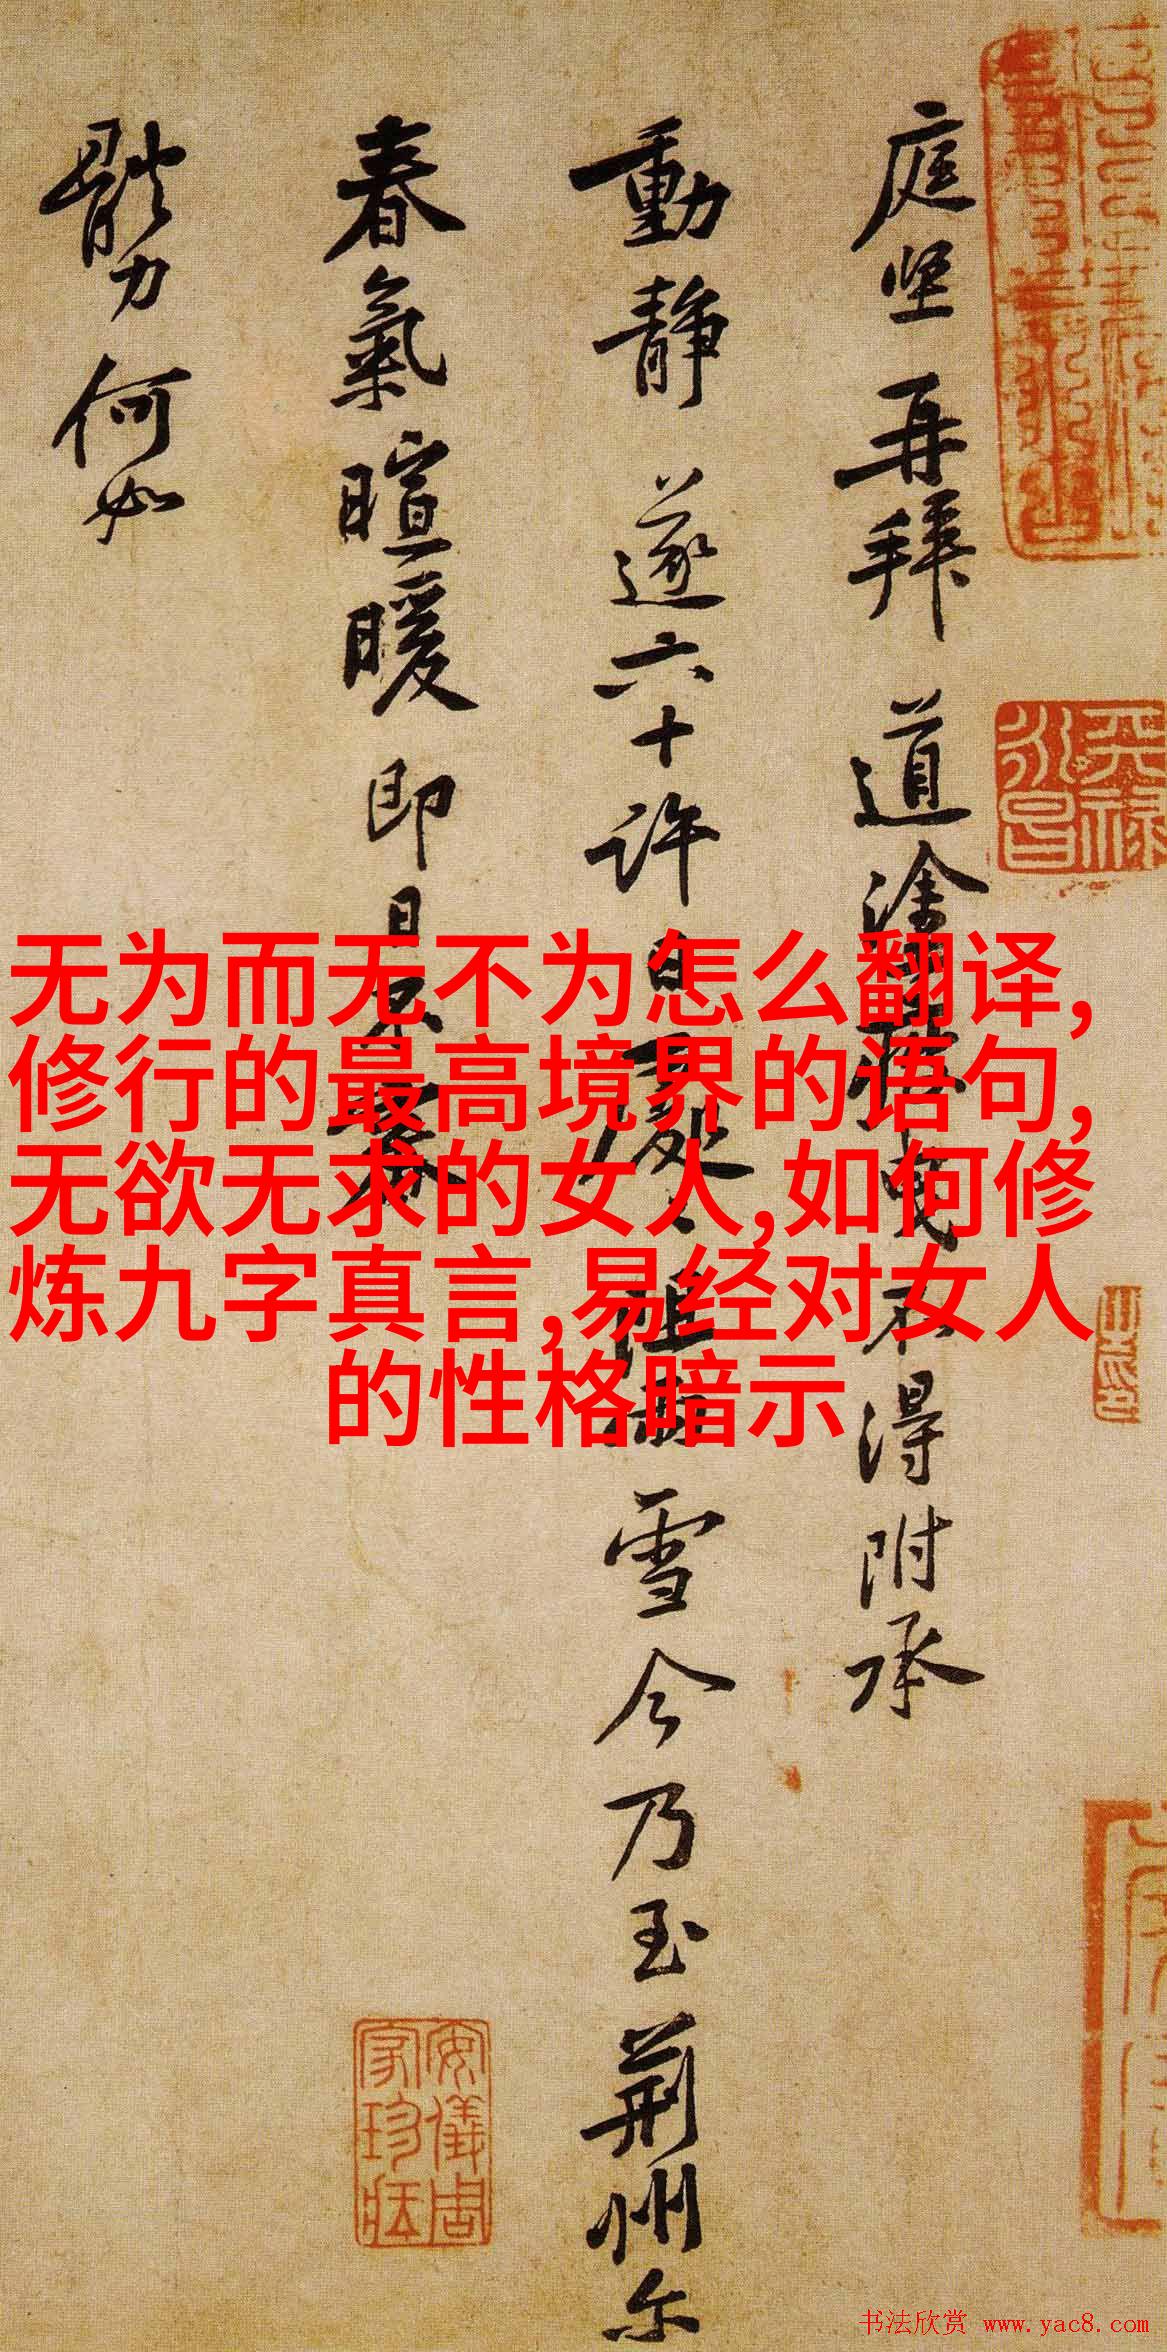 庭坚再拜 道涂
不得附承
動静 遂六十许日
雪今乃至荆州尔
春氣暄暖 即日不審
體力何如
无为而无不为怎么翻译,
修行的最高境界的语句,
无欲无求的女人,如何修
炼九字真言,易经对女人
的性格暗示
天禄
永昌
安儀周
家珍藏
书法欣赏 www.yac8.com